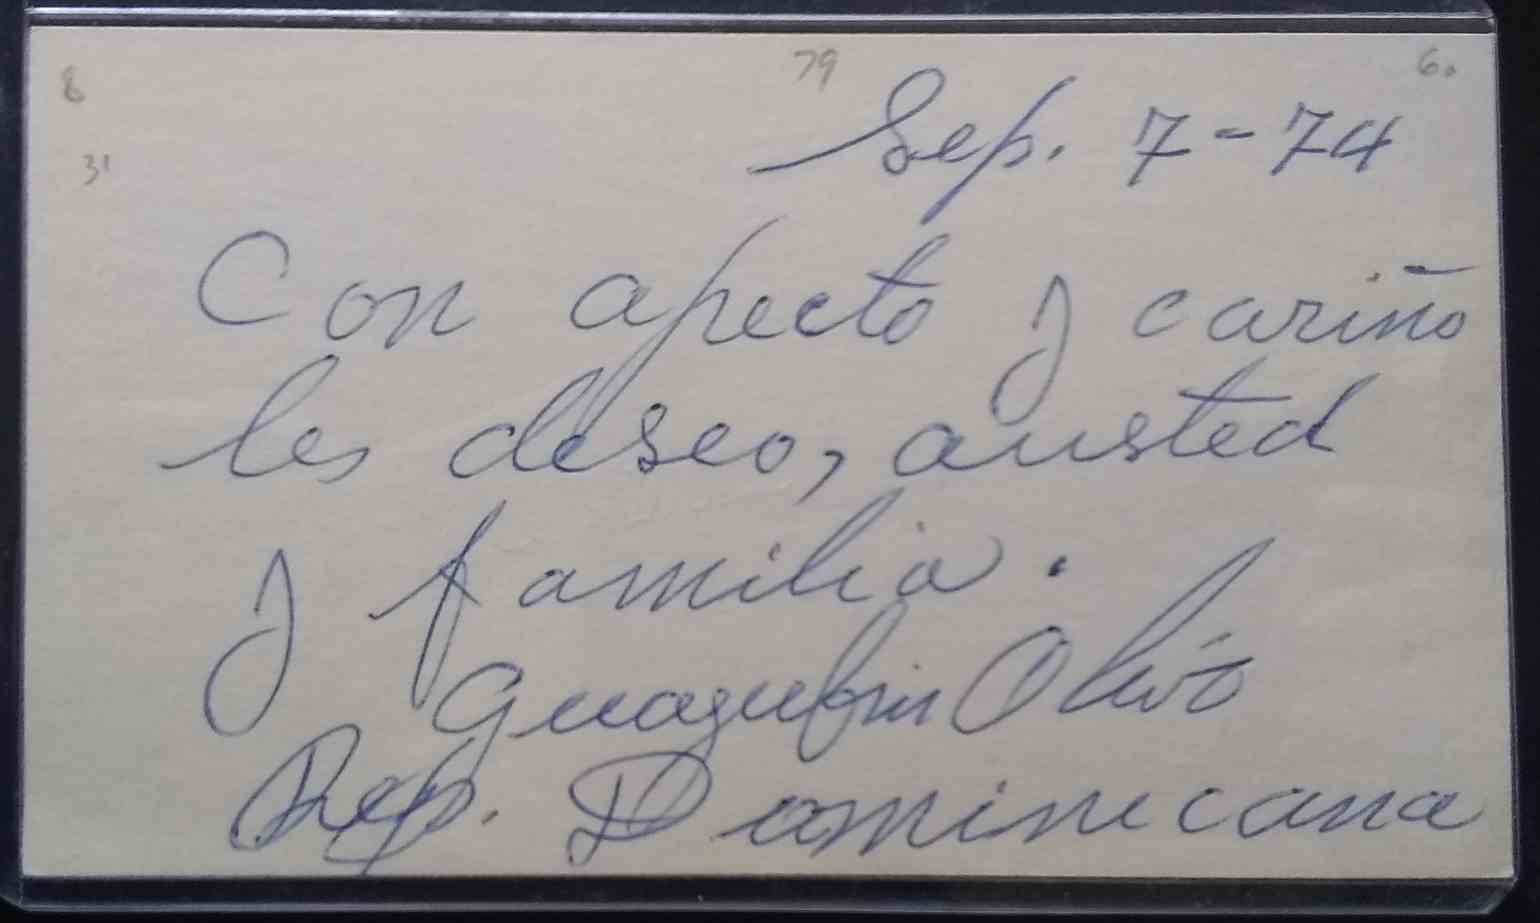 8 79 6.
31
Sep. 7-74
Con afecto y cariño
les deseo, austed
y familia.
Guayubin Olivo
Rep. Dominicana